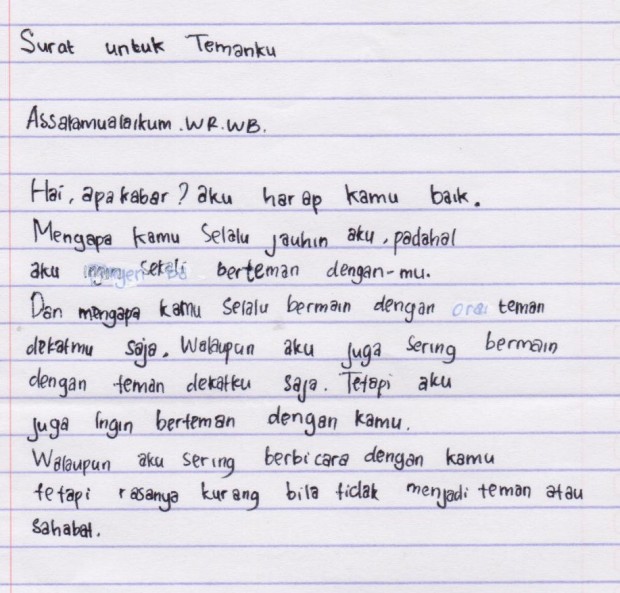 Surat untuk Temanku
Assalamualaikum.WR.WB.
Hai, apa kabar? aku harap kamu baik.
Mengapa kamu Selalu jauhin aku, padahal
aku sekali berteman dengan-mu.
Dan mengapa kamu selalu bermain dengan teman
dekatmu saja. Walaupun aku juga sering bermain
dengan teman dekatku saja. Tetapi aku
juga ingin berteman dengan kamu.
Walaupun aku sering berbicara dengan kamu
tetapi rasanya kurang bila tidak menjadi teman atau
sahabat.